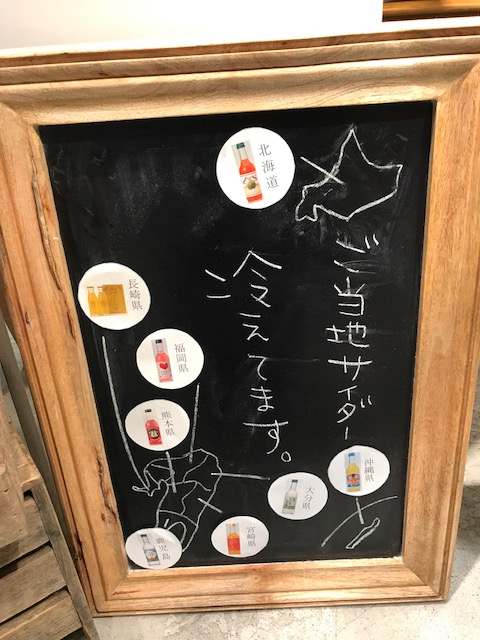 ご当地サイダー
冷えてます。
北海道
長崎県
福岡県
熊本県
鹿児島
宮崎県
大分県
沖縄県